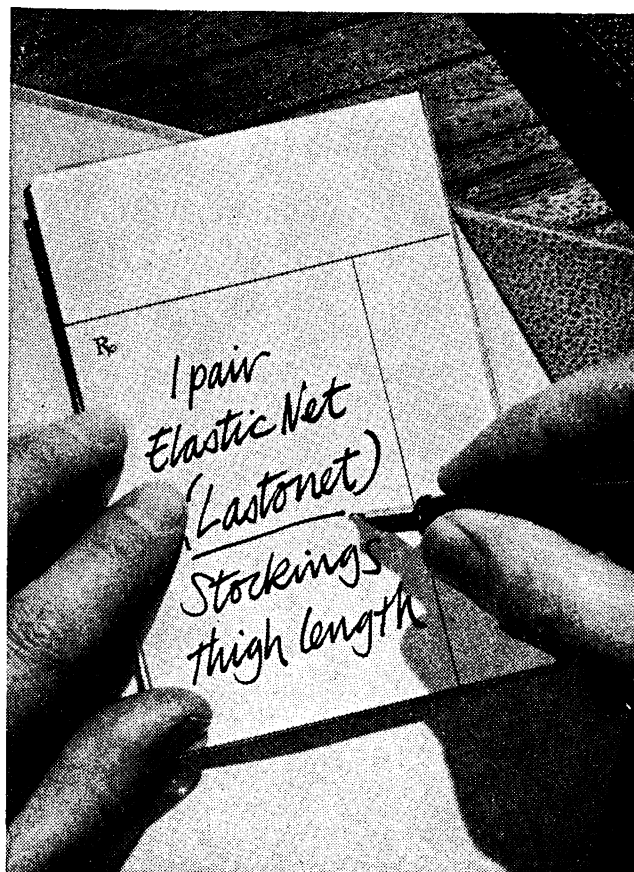 Rx
1 pair
Elastic Net
(Lastonet)
Stockings
thigh length